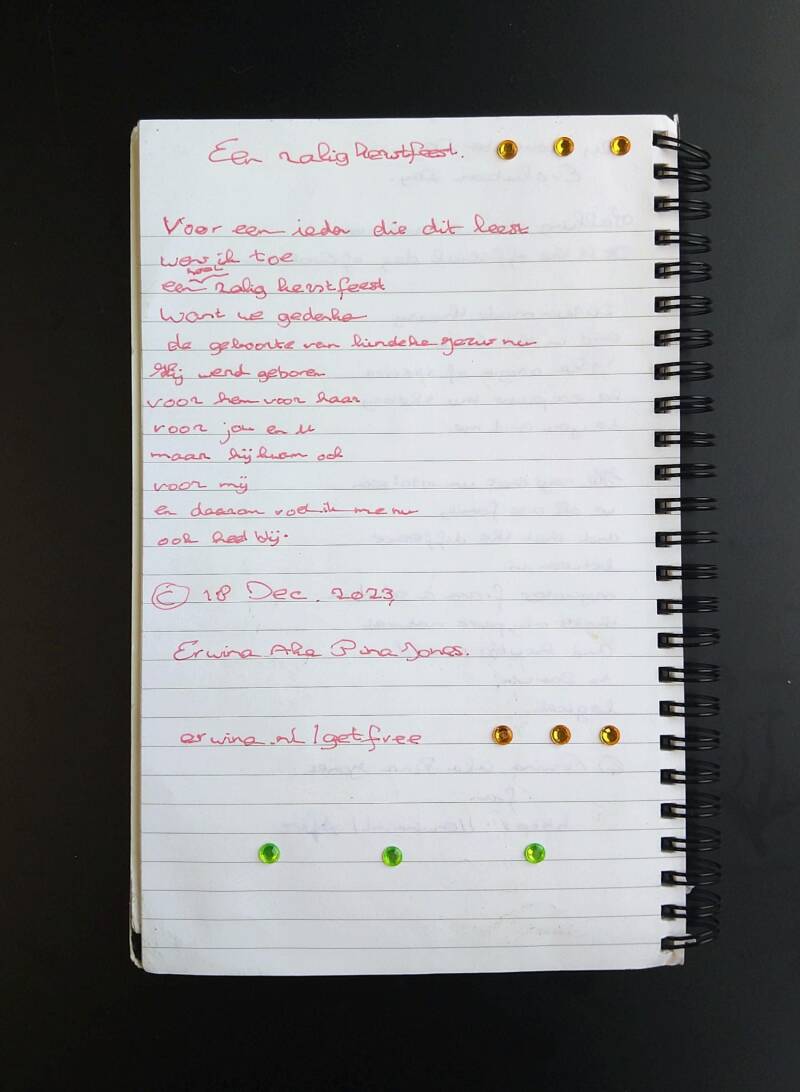 Een zalig kerstfeest.
Voor een ieder die dit leest
wens ik toe
een heel zalig kerstfeest
Want we gedenke
de geboorte van kindeke jezus nu
Hij werd geboren
voor hem voor haar
voor jou en u
maar hij kwam ook
voor mij
en daarom voel ik me nu
ook heel blij.
© 18 Dec. 2023
Erwina Aka Pina Jones.
erwina.nl/getfree